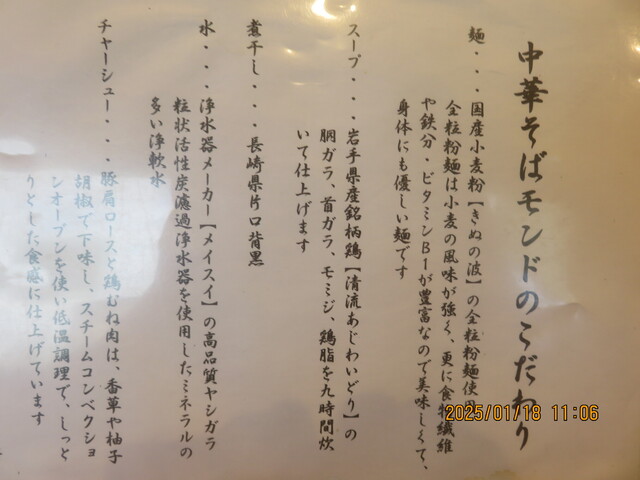 中華そばモンドのこだわり
麺・・・国産小麦粉【きぬの波】の全粒粉麺使用
全粒粉麺は小麦の風味が強く、更に食物繊維
や鉄分・ビタミンB1が豊富なので美味しくて、
身体にも優しい麺です
スープ・・・岩手県産銘柄鶏【清流あじわいどり】の
胴ガラ、首ガラ、モミジ、鶏脂を九時間炊
いて仕上げます
煮干し・・・長崎県片口背黒
水・・・浄水器メーカー【メイスイ】の高品質ヤシガラ
粒状活性炭濾過浄水器を使用したミネラルの
多い浄軟水
チャーシュー・・・豚肩ロースと鶏むね肉は、香草や柚子
胡椒で下味し、スチームコンベクショ
ンオーブンを使い低温調理で、しっと
りとした食感に仕上げています
2025/01/18 11:06